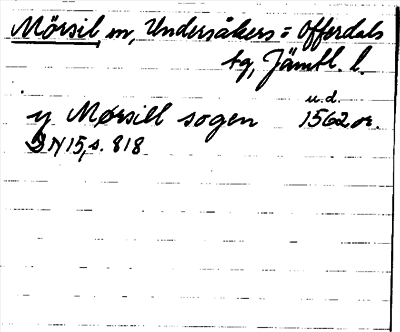 Mörsil, sn, Undersåkers = Offerdals
tg, Jämtl. l.
y Mørsill sogen u.d. 1562 or.
DN 15, s. 818